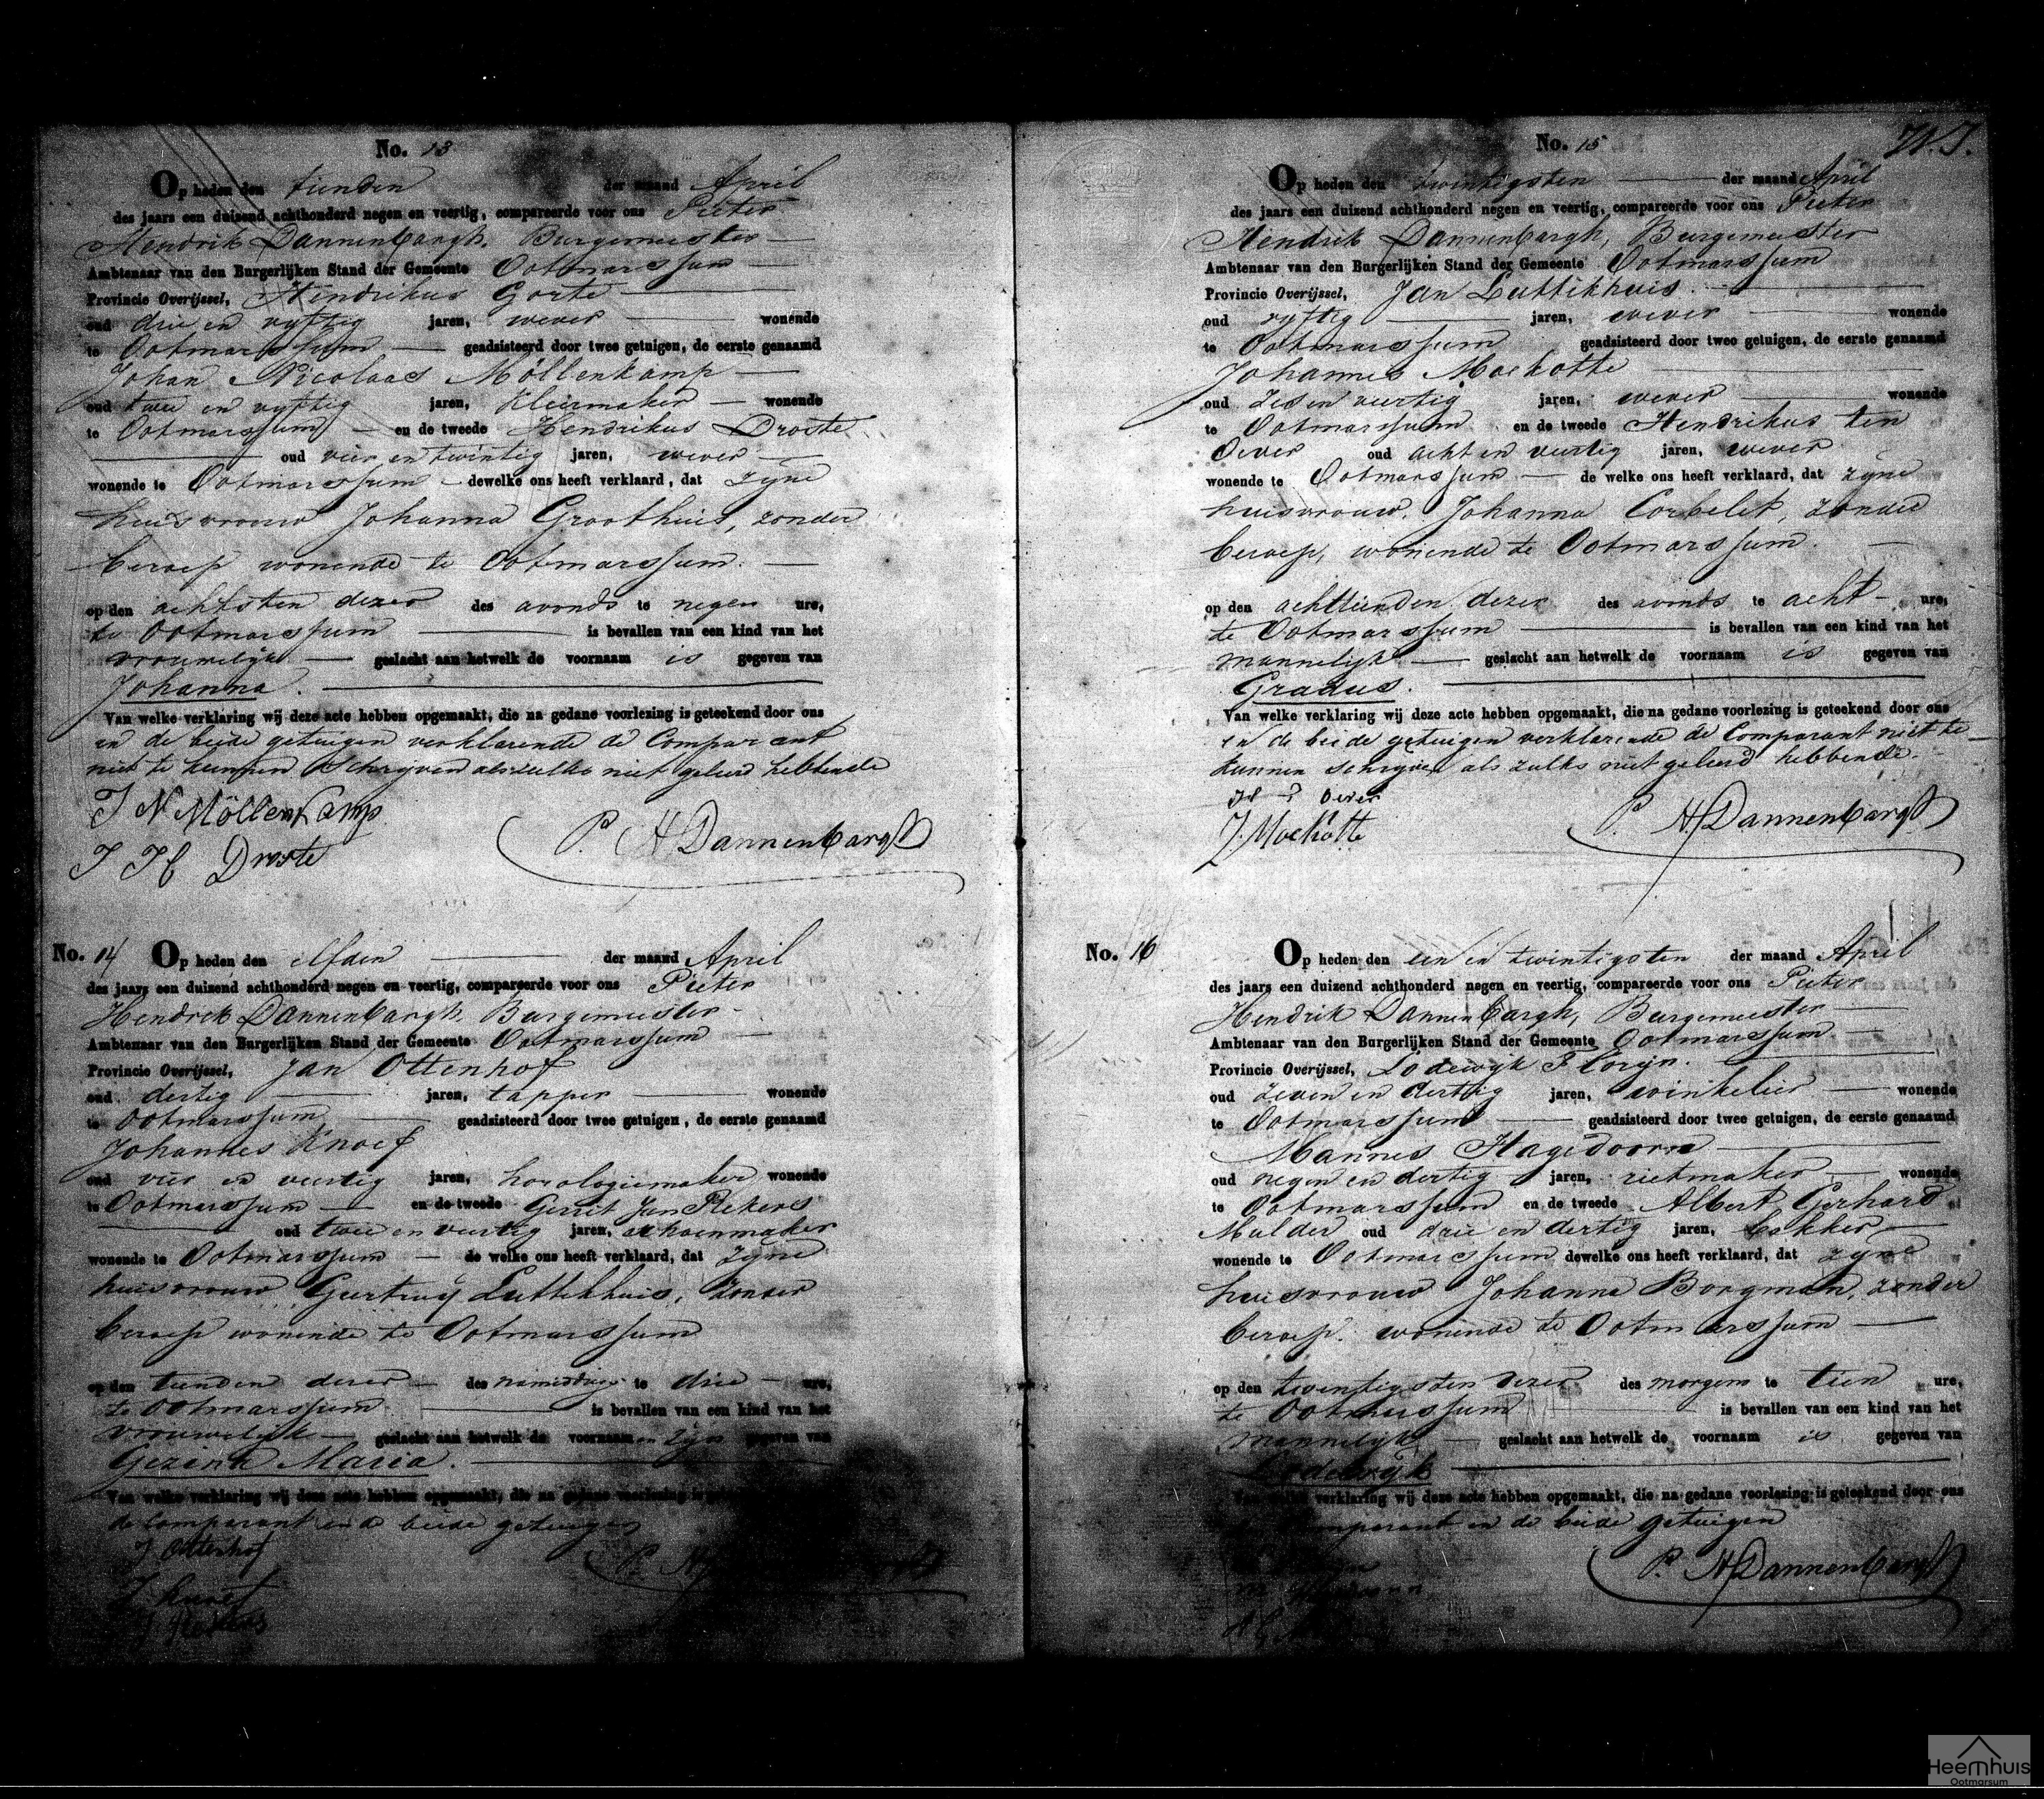 No. 13
Op heden den tienden der maand April
des jaars een duizend achthonderd negen en veertig, compareerde voor ons Pieter
Hendrik Dannenbargh, Burgemeister
Ambtenaar van den Burgerlijken Stand der Gemeente Ootmarssum
Provincie Overijssel, Hendrikus Gorte
oud drie en vyftig jaren, wever wonende
te Ootmarssum geadsisteerd door twee getuigen, de eerste genaamd
Johan Nicolaas Möllenkamp
oud twee en vyftig jaren, kleermaker wonende
te Ootmarssum en de tweede Hendrikus Droste
oud vier en twintig jaren, wever
wonende te Ootmarssum dewelke ons heeft verklaard, dat zyne
huisvrouw Johanna Groothuis, zonder
beroep wonende te Ootmarssum.
op den achtsten dezer des avonds te negen ure,
te Ootmarssum is bevallen van een kind van het
vrouwelyk geslacht aan hetwelk de voornaam is gegeven van
Johanna.
Van welke verklaring wij deze acte hebben opgemaakt, die na gedane voorlezing is geteekend door ons
en de beide getuigen verklarende de Comparant
niet te kunnen schryven als zulks niet geleerd hebbende
J N Möllenkamp
J H Droste
P. H Dannenbargh
No. 14 Op heden den elfden der maand April
des jaars een duizend achthonderd negen en veertig, compareerde voor ons Pieter
Hendrik Dannenbargh, Burgemeister
Ambtenaar van den Burgerlijken Stand der Gemeente Ootmarssum
Provincie Overijssel, Jan Ottenhof
oud dertig jaren, tapper wonende
te Ootmarssum geadsisteerd door twee getuigen, de eerste genaamd
Johannes Knoef
oud vier en veertig jaren, horologiemaker wonende
te Ootmarssum en de tweede Gerrit Jan Rekers
oud twee en veertig jaren, schoenmaker
wonende te Ootmarssum de welke ons heeft verklaard, dat zyne
huisvrouw Geertruy Luttikhuis, zonder
beroep wonende te Ootmarssum
op den tienden dezer des namiddags te drie ure,
te Ootmarssum is bevallen van een kind van het
vrouwelyk geslacht aan hetwelk de voornaamen zyn gegeven van
Gezina Maria.
Van welke verklaring wij deze acte hebben opgemaakt, die na gedane voorlezing is
de Comparant en de beide getuigen
J Ottenhof
J Knoef
J Rekers
P. H
No. 15
Op heden den twintigsten der maand April
des jaars een duizend achthonderd negen en veertig, compareerde voor ons Pieter
Hendrik Dannenbargh, Burgemeister
Ambtenaar van den Burgerlijken Stand der Gemeente Ootmarssum
Provincie Overijssel, Jan Luttikhuis.
oud vyftig jaren, wever wonende
te Ootmarssum geadsisteerd door twee getuigen, de eerste genaamd
Johannes Mockotte
oud zes en veertig jaren, wever wonende
te Ootmarssum en de tweede Hendrikus ten
Oever oud acht en veertig jaren, wever
wonende te Ootmarssum de welke ons heeft verklaard, dat zyne
huisvrouw, Johanna Corbelet, zonder
beroep, wonende te Ootmarssum.
op den achttienden dezer des avonds te acht ure,
te Ootmarssum is bevallen van een kind van het
mannelyk geslacht aan hetwelk de voornaam is gegeven van
Gradus.
Van welke verklaring wij deze acte hebben opgemaakt, die na gedane voorlezing is geteekend door ons
en de beide getuigen verklarende de Comparant niet te
kunnen schryven als zulks niet geleerd hebbende.
Oever
J. Mockotte
P. H Dannenbargh
No. 16 Op heden den een en twintigsten der maand April
des jaars een duizend achthonderd negen en veertig, compareerde voor ons Pieter
Hendrik Dannenbargh, Burgemeester
Ambtenaar van den Burgerlijken Stand der Gemeente Ootmarssum
Provincie Overijssel, Lodewyk Floryn.
oud zeven en dertig jaren, winkelier wonende
te Ootmarssum geadsisteerd door twee getuigen, de eerste genaamd
Mannes Hagedoorn
oud negen en dertig jaren, rietmaker wonende
te Ootmarssum en de tweede Albert Gerhard
Mulder oud drie en dertig jaren, bakker
wonende te Ootmarssum dewelke ons heeft verklaard, dat zyne
huisvrouw Johanna Borgman, zonder
beroep. wonende te Ootmarssum
op den twintigsten dezer des morgens te tien ure,
te Ootmarssum is bevallen van een kind van het
mannelyk geslacht aan hetwelk de voornaam is gegeven van
Lodewyk
Van welke verklaring wij deze acte hebben opgemaakt, die na gedane voorlezing is geteekend door ons
Comparant en de beide getuigen
P. H Dannenbargh
Heemhuis
Ootmarsum